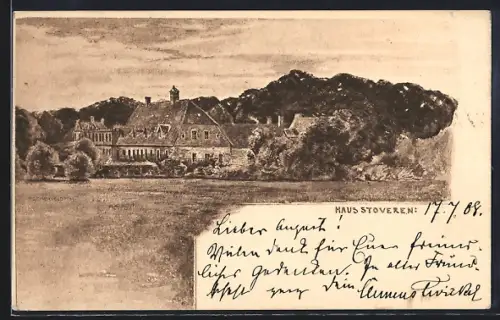 HAUS STOVEREN:
17.7.08.
Lieber August!
Vielen Dank für Euer freund-
liches Gedenken. In alter Freund
schaft ganz Dein Clemens